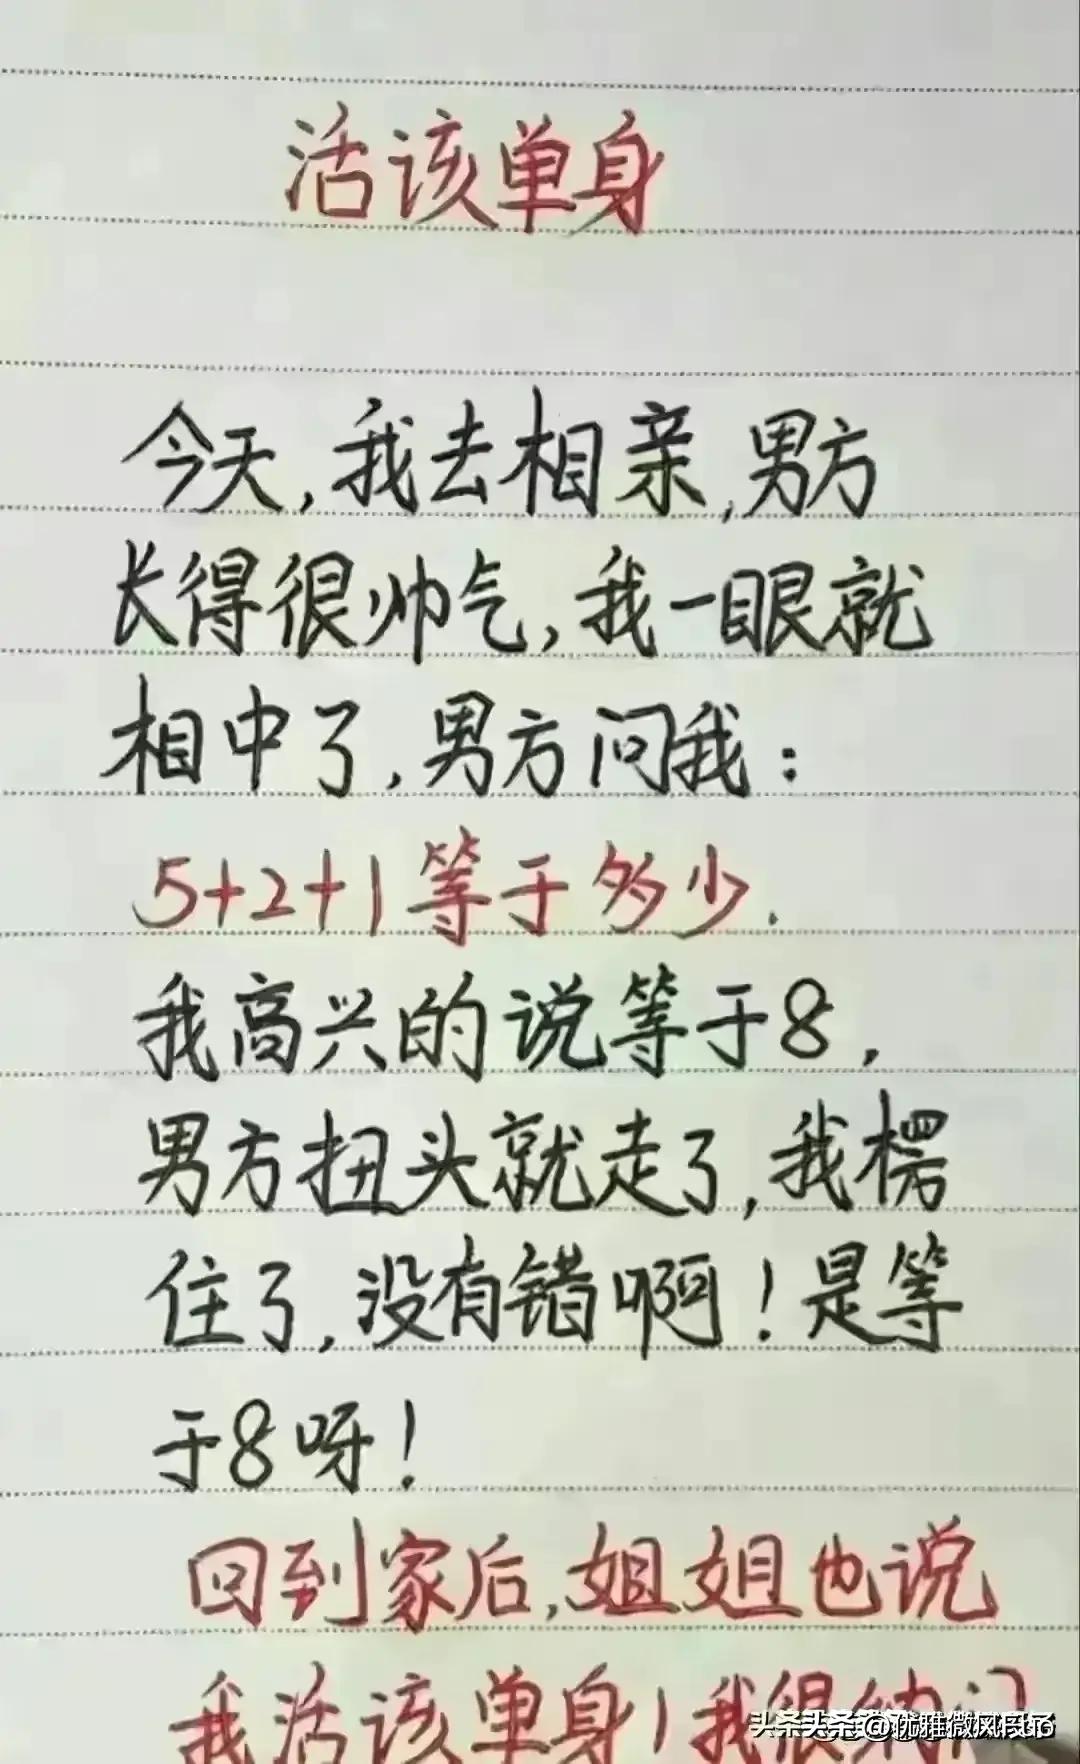 活该单身
今天,我去相亲,男方
长得很帅气,我一眼就
相中了,男方问我:
5+2+1等于多少.
我高兴的说等于8,
男方扭头就走了,我楞
住了,没有错啊!是等
于8呀!
回到家后,姐姐也说
我活该单身!我很纳闷
头条@优雅微风段子